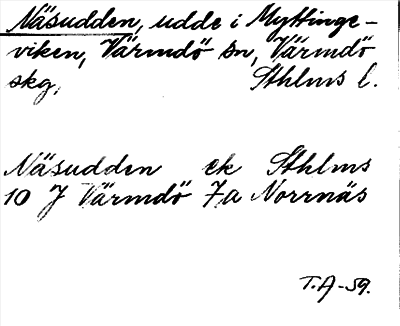 Näsudden, udde i Myttinge-
viken, Värmdö sn, Värmdö
skg, Sthlms l.
Näsudden ek Sthlms
10 J Värmdö 7a Norrnäs
T.A-59.